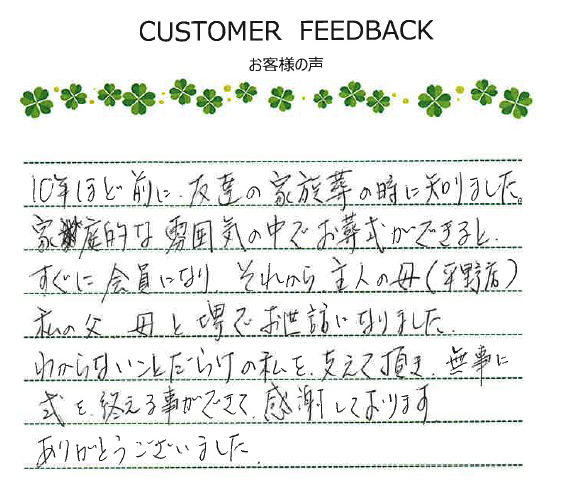 CUSTOMER FEEDBACK
お客様の声
10年ほど前に、友達の家族葬の時に知りました。
家庭的な雰囲気の中でお葬式ができると、
すぐに会員になり、それから、主人の母(平野店)
私の父 母と堺でお世話になりました。
わからないことだらけの私を、支えて頂き、無事に
式を、終える事ができて、感謝しております
ありがとうございました。